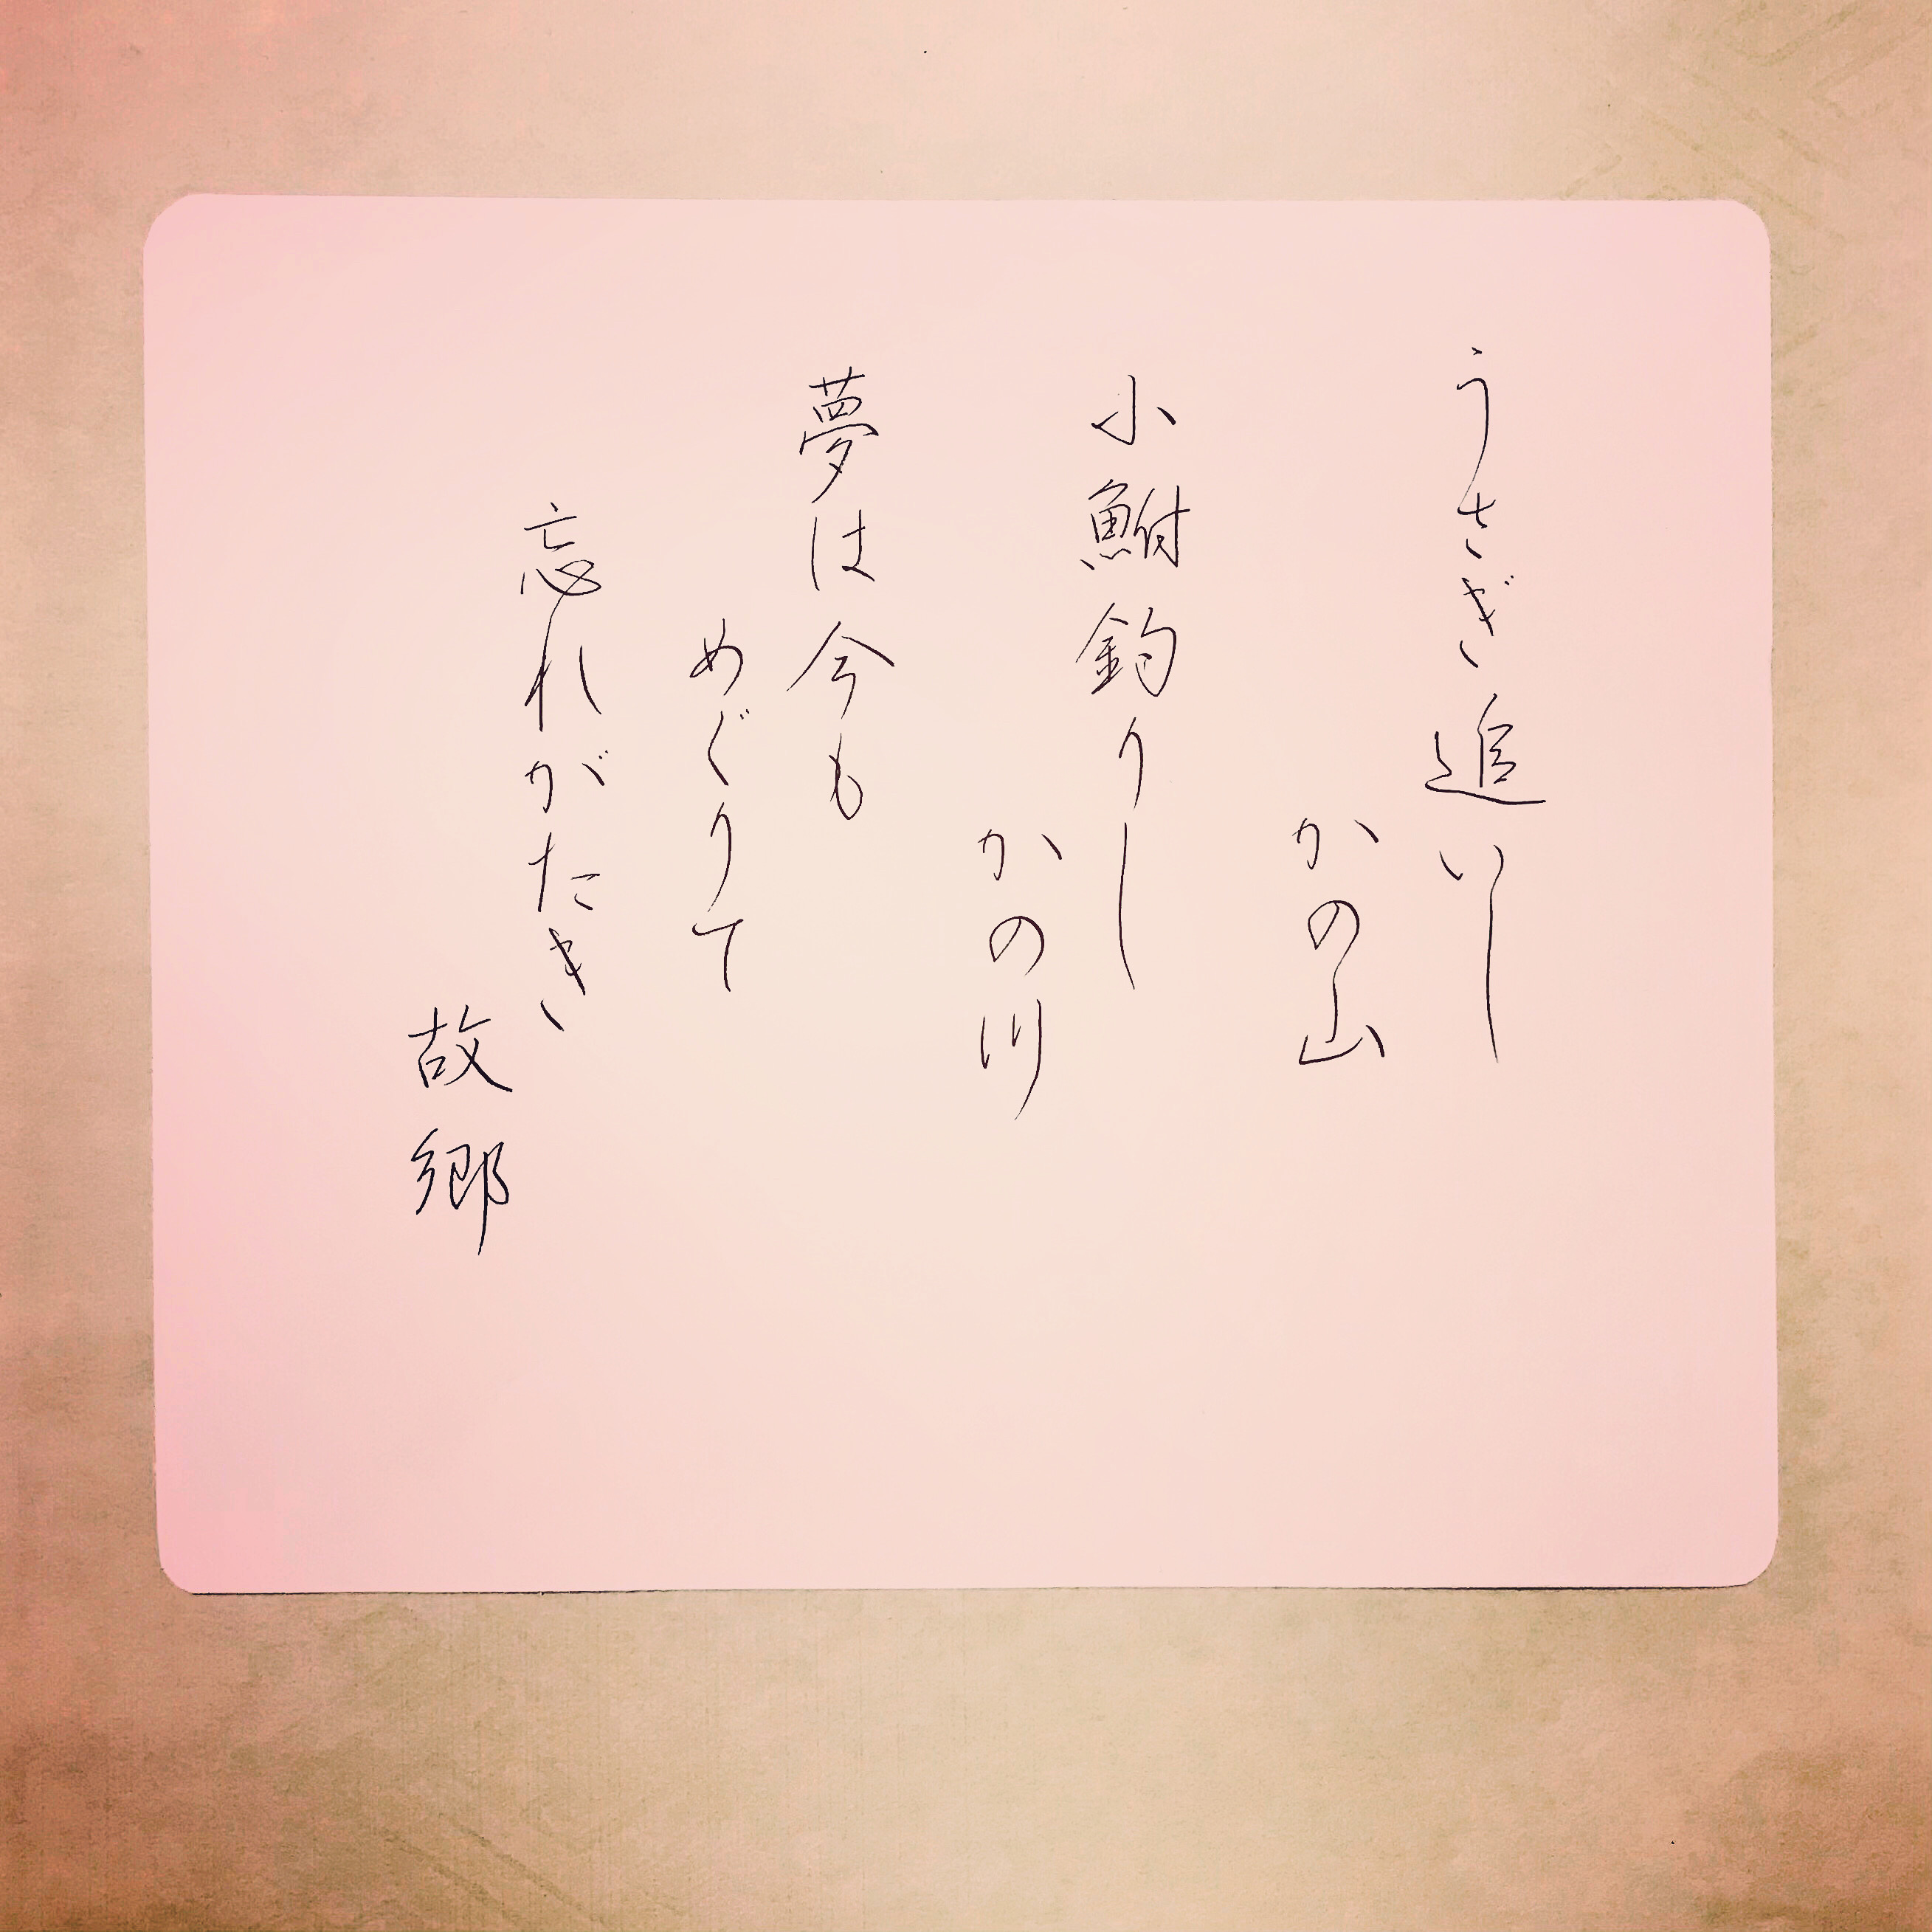 うさぎ追いし
かの山
小鮒釣りし
かの川
夢は今も
めぐりて
忘れがたき
故郷